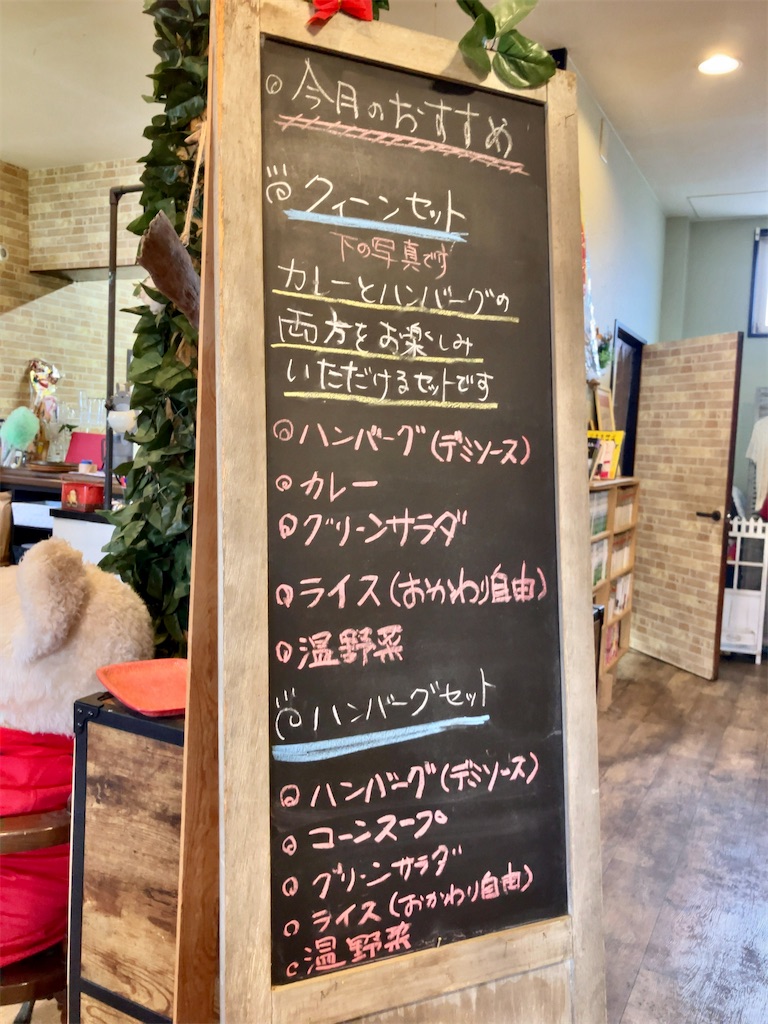 今月のおすすめ
クィーンセット
下の写真です
カレーとハンバーグの
両方をお楽しみ
いただけるセットです
ハンバーグ(デミソース)
カレー
グリーンサラダ
ライス(おかわり自由)
温野菜
ハンバーグセット
ハンバーグ(デミソース)
コーンスープ
グリーンサラダ
ライス(おかわり自由)
温野菜